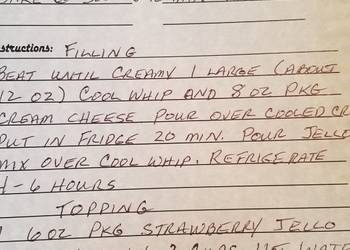 structions: FILLING
BEAT UNTIL CREAMY 1 LARGE (ABOUT
12 OZ) COOL WHIP AND 8 OZ PKG
CREAM CHEESE POUR OVER COOLED CR
PUT IN FRIDGE 20 MIN. POUR JELLO
MIX OVER COOL WHIP. REFRIGERATE
4-6 HOURS
TOPPING
1 6 OZ PKG STRAWBERRY JELLO